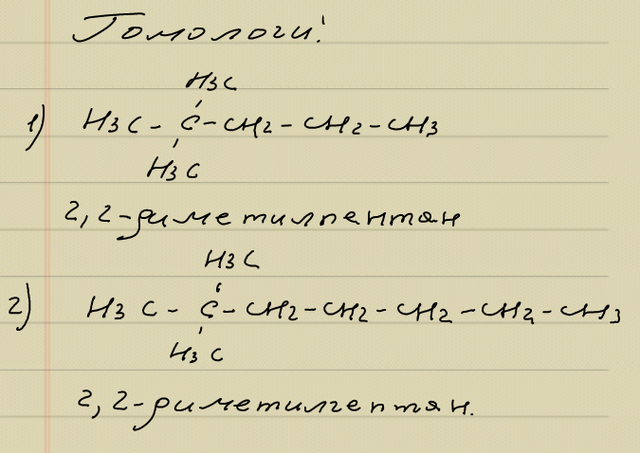 Гомологи:
H3C
1) H3C - C - CH2 - CH2 - CH3
H3C
2,2-диметилпентан
H3C
2) H3C - C - CH2 - CH2 - CH2 - CH2 - CH3
H3C
2,2-диметилгептан.